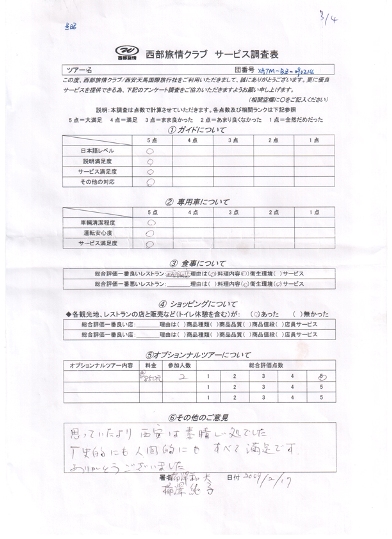 3/4
西部旅情クラブ サービス調査表
西部旅情
ツアー名 団番号
この度、西部旅情クラブ/西安天馬国際旅行社をご利用いただきまして、誠にありがとうございます。更に優良
サービスを提供できる為、下記のアンケート調査をご協力いただきますようお願い申し上げます。
(相当空欄に○をご記入ください)
説明:本調査は点数で計算させていただきます。各点数及び相関ランクは下記参照
5点=大満足 4点=満足 3点=まあ良かった 2点=あまり良くなかった 1点=全然だめだった
①ガイドについて
5点 4点 3点 2点 1点
日本語レベル ○
説明満足度 ○
サービス満足度 ○
その他の対応 ○
② 専用車について
5点 4点 3点 2点 1点
車輌清潔程度 ○
運転安心度 ○
サービス満足度 ○
③ 食事について
総合評価一番良いレストラン 理由は( )料理内容( )衛生環境( )サービス
総合評価一番悪いレストラン 理由は( )料理内容( )衛生環境( )サービス
④ ショッピングについて
◆各観光地、レストランの店と販売など(トイレ体験を含む)が: ( )あった ( )無かった
総合評価一番良い店 理由は( )商品種類( )商品品質( )商品価格( )店員サービス
総合評価一番悪い店 理由は( )商品種類( )商品品質( )商品価格( )店員サービス
⑤オプショナルツアーについて
オプショナルツアー内容 料金 参加人数 総合評価点数
2 1 2 3 4 5
1 2 3 4 5
⑥その他のご意見
思っていたより西安は素晴しい処でした
歴史的にも人間的にも すべて満足です。
ありがとうございました
署名 日付